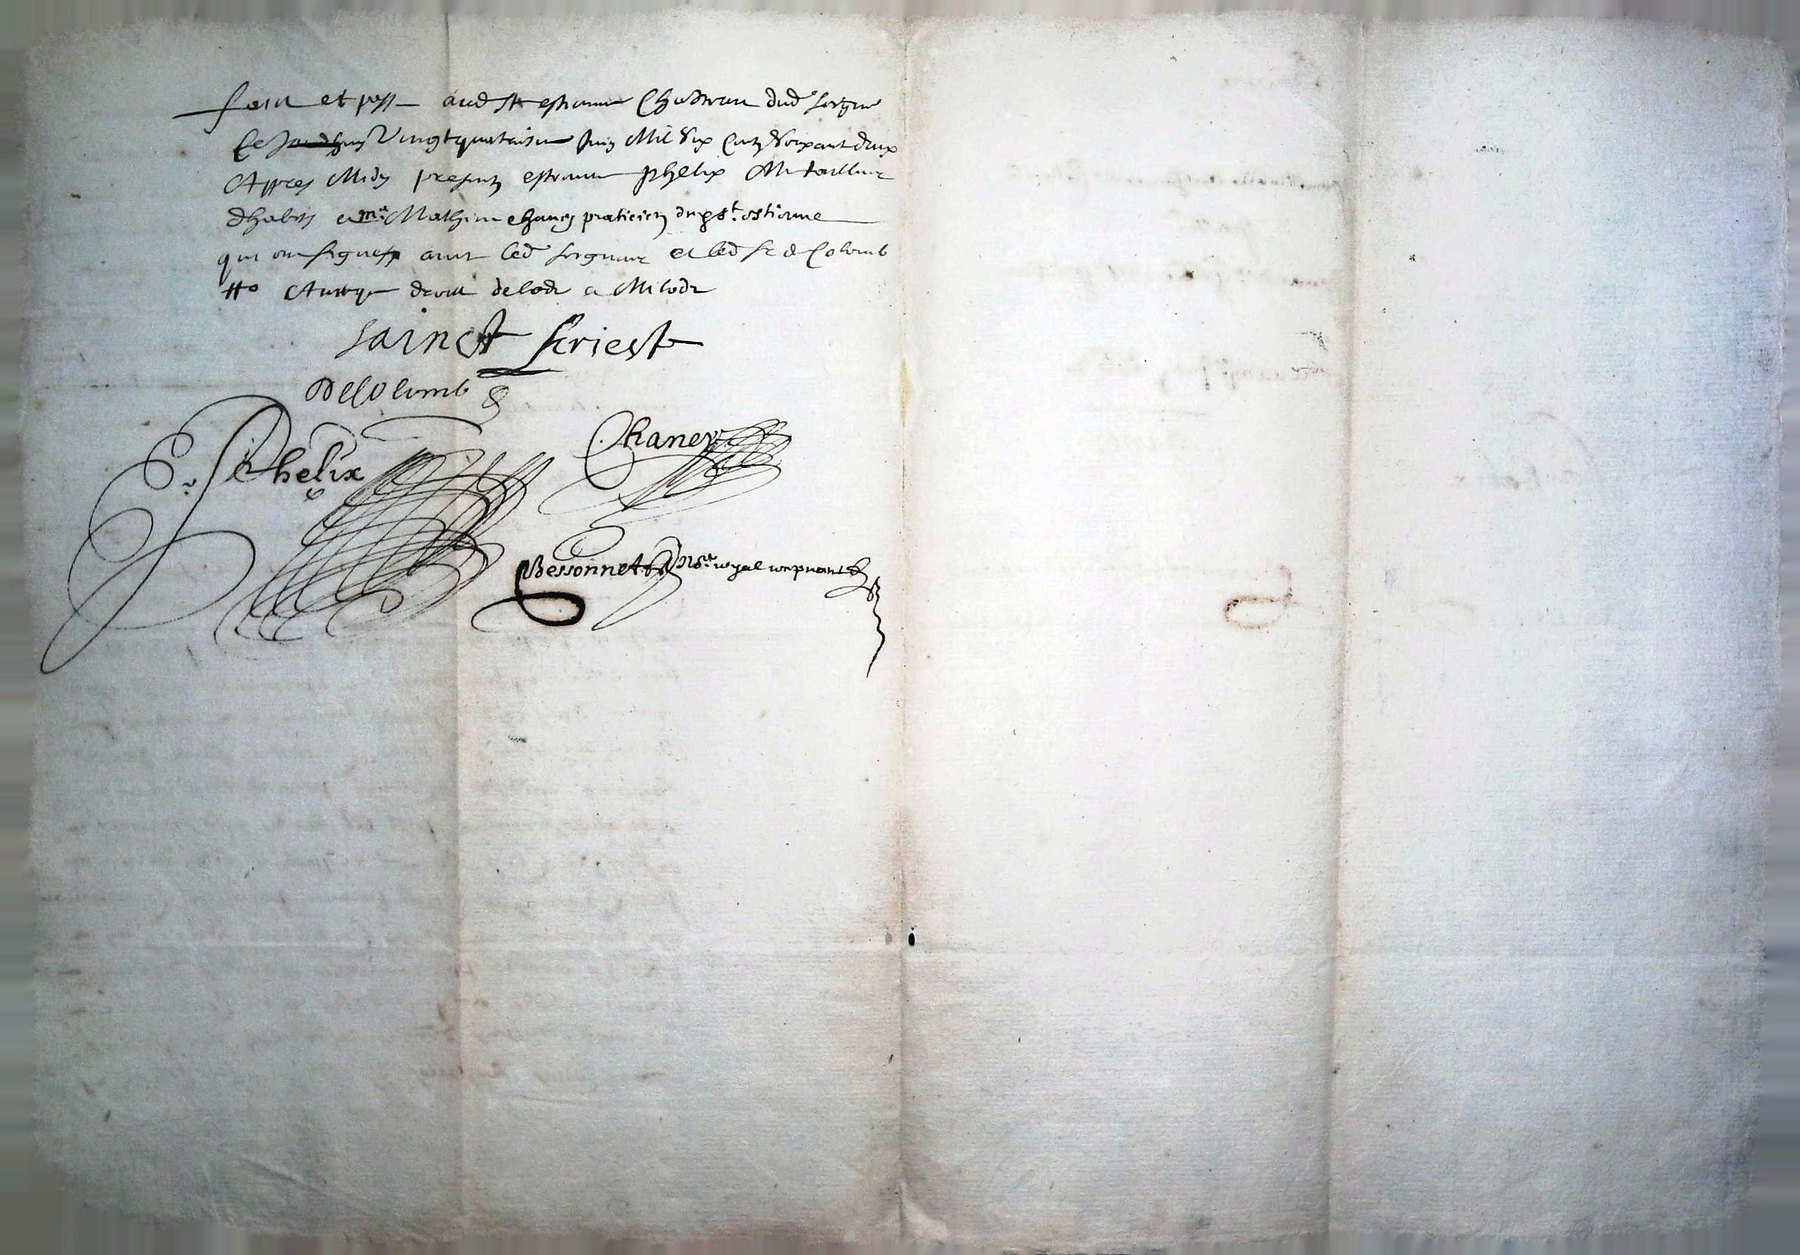 faict et passé aud St estienne Chasteau dud seigneur
le Vingtquatriesme Juin Mil Six Centz Soixant deux
Appres Midy presentz estienne phelix Me tailleur
dhabitz et me Mathieu chaney praticien dud st. estienne
qui ont signes avec led seigneur et led sr de Colomb
droict de lodz a Milodz
Sainct Priest
DeColomb
E. Phelix
Chaney
Bessonnet Nore royal